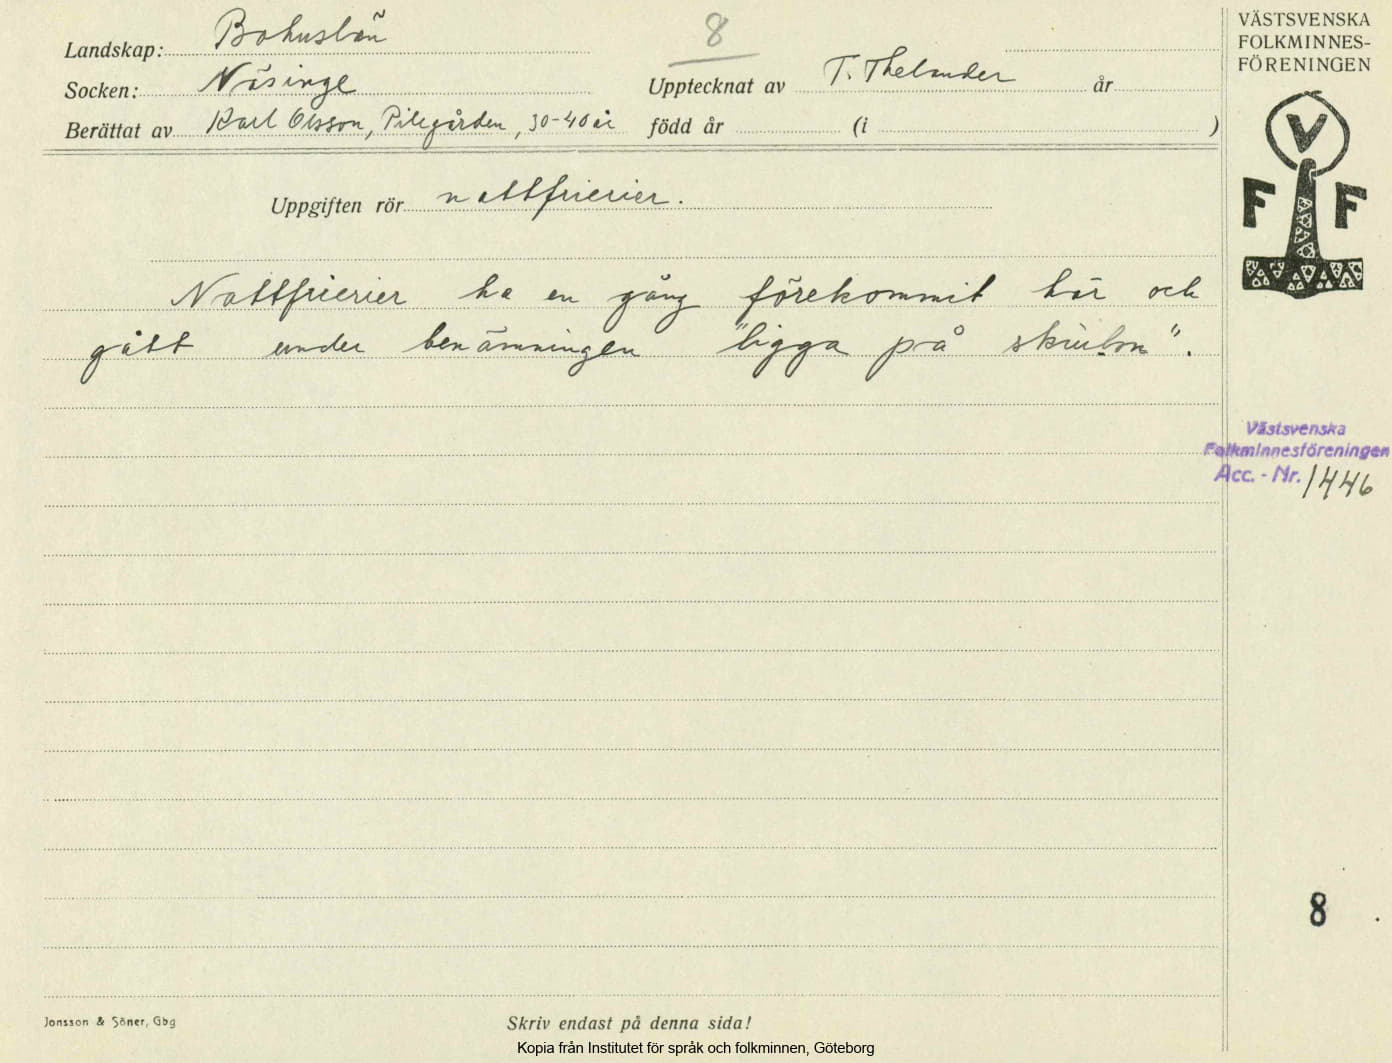 Landskap: Bohuslän
8
VÄSTSVENSKA
FOLKMINNES-
FÖRENINGEN
Socken: Näsinge
Upptecknat av T. Thelander år
Berättat av Karl Olsson, Pilegården, 30-40 år född år (i )
V
F F
Uppgiften rör nattfrierier.
Nattfrierier ha en gång förekommit här och
gått under benämningen "ligga på
Västsvenska
Folkminnesföreningen
Acc. - Nr. 1446
8
Jonsson & Söner, Gbg
Skriv endast på denna sida!
Kopia från Institutet för språk och folkminnen, Göteborg